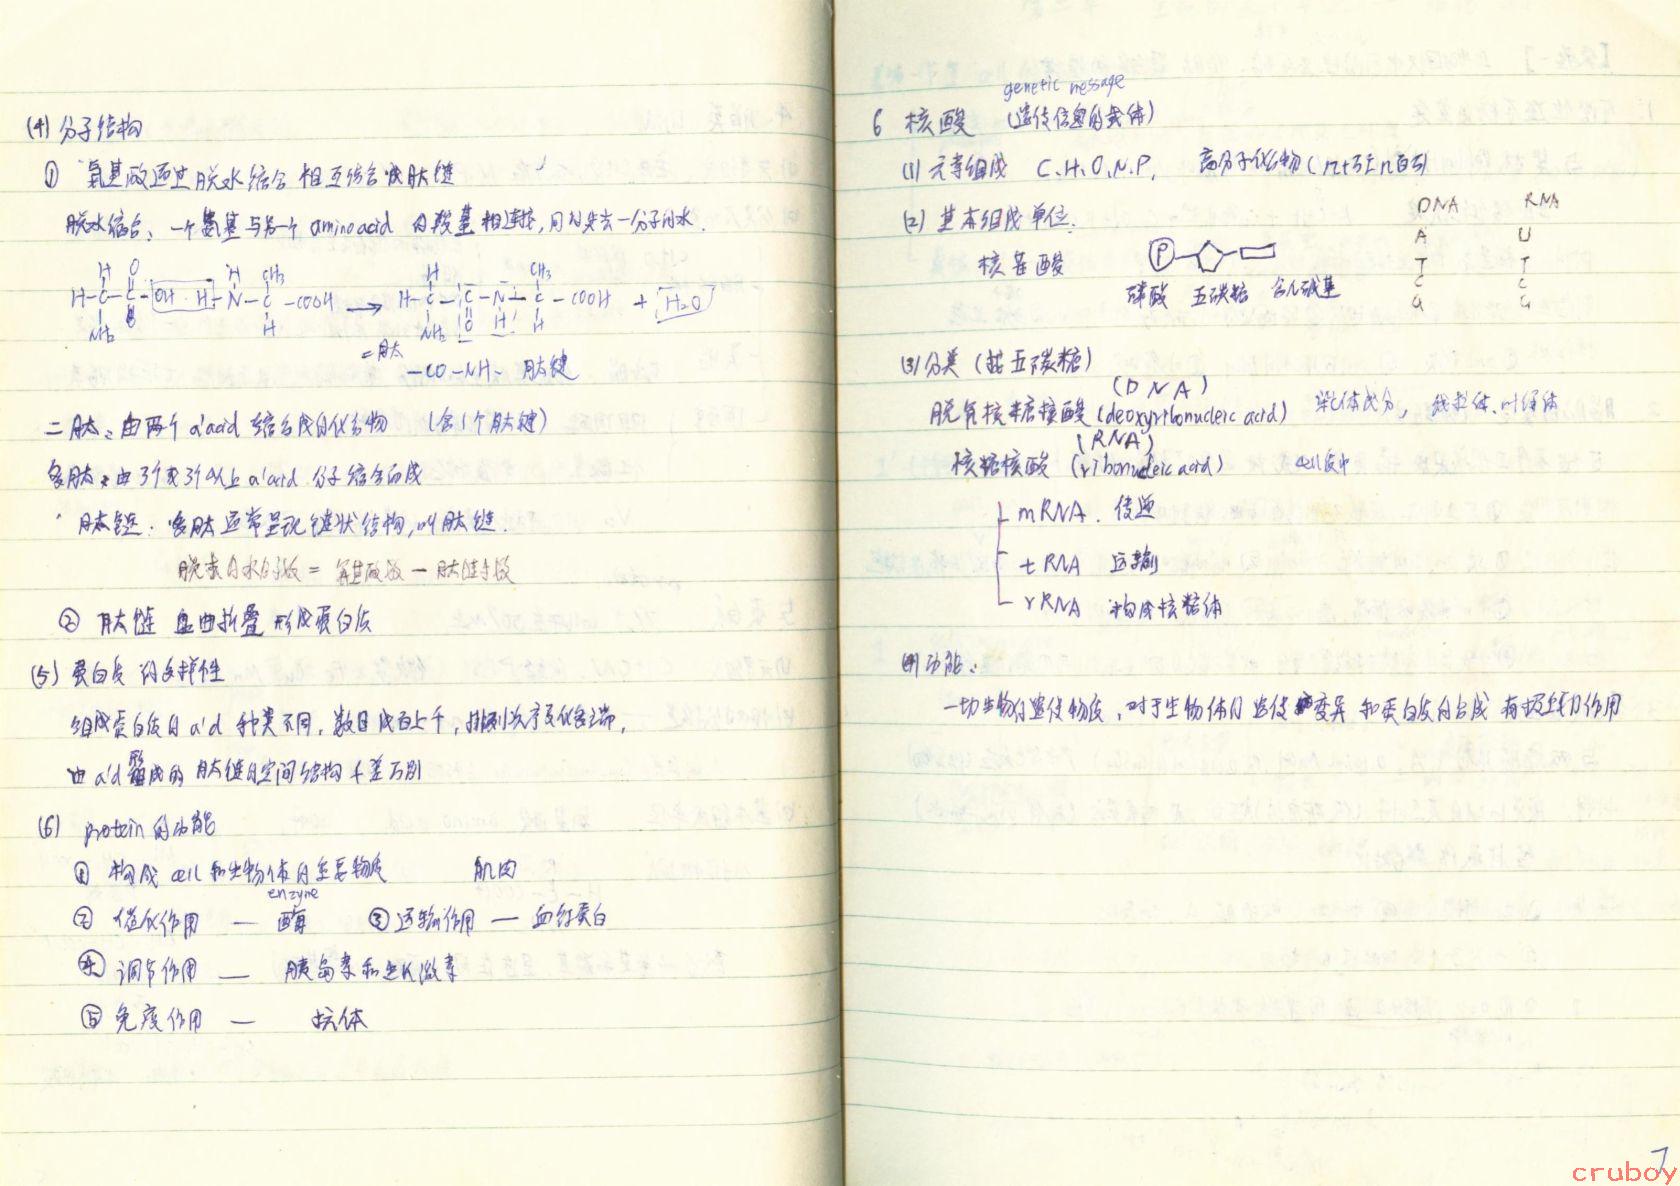 (4) 分子结构
① 氨基酸通过脱水缩合相互结合成肽链
脱水缩合：一个氨基与另一个 amino acid 的羧基相连接，同时失去一分子的水．
H O H CH₃ H CH₃
H-C-C-OH·H-N-C-COOH → H-C-C-N-C-COOH + H₂O
NH₂ H NH₂ O H H
=肽
-CO-NH- 肽键
二肽：由两个 a'acid 缩合成的化合物 (含1个肽键)
多肽：由3个或3个以上 a'acid 分子缩合而成
肽链：多肽通常呈现链状结构，叫肽链．
脱去的水分子数 = 氨基酸数 - 肽链条数
② 肽链 盘曲折叠 形成蛋白质
(5) 蛋白质的多样性
组成蛋白质的 a'd 种类不同，数目成百上千，排列次序变化多端，
由 a'd 组成的 肽链的空间结构千差万别
(6) protein 的功能
① 构成 cell 和生物体的重要物质 肌肉
enzyme
② 催化作用 — 酶 ③ 运输作用 — 血红蛋白
④ 调节作用 — 胰岛素和生长激素
⑤ 免疫作用 — 抗体
genetic message
6 核酸 (遗传信息的载体)
(1) 元素组成 C.H.O.N.P. 高分子化合物 (几十万至几百万)
(2) 基本组成单位． DNA RNA
核苷酸 P A U
磷酸 五碳糖 含N碱基 T T
C C
G G
(3) 分类 (据五碳糖)
(DNA)
脱氧核糖核酸 (deoxyribonucleic acid) 染体成分，线粒体、叶绿体
(RNA)
核糖核酸 (ribonucleic acid) cell质中
mRNA．传递
tRNA 运输
rRNA 构成核糖体
(4) 功能：
一切生物的遗传物质，对于生物体的遗传变异和蛋白质的合成有极重要作用
7
cruboy